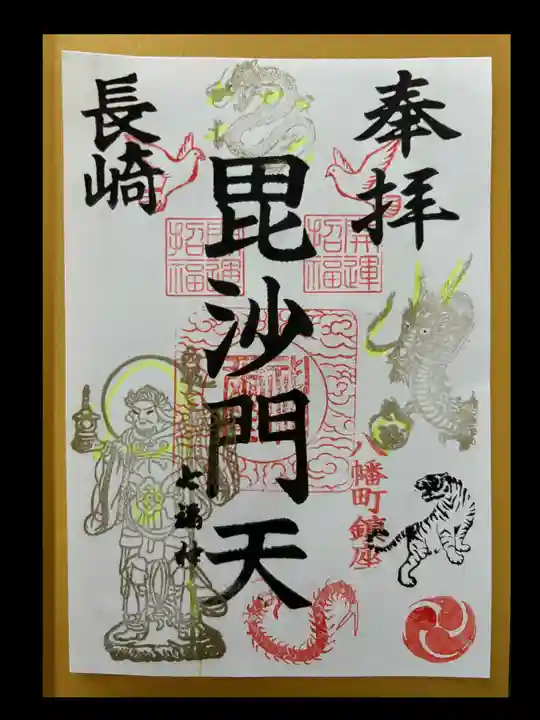 奉拝
開運
招福
八幡町鎮座
毘沙門天
開運
招福
七福神
長崎